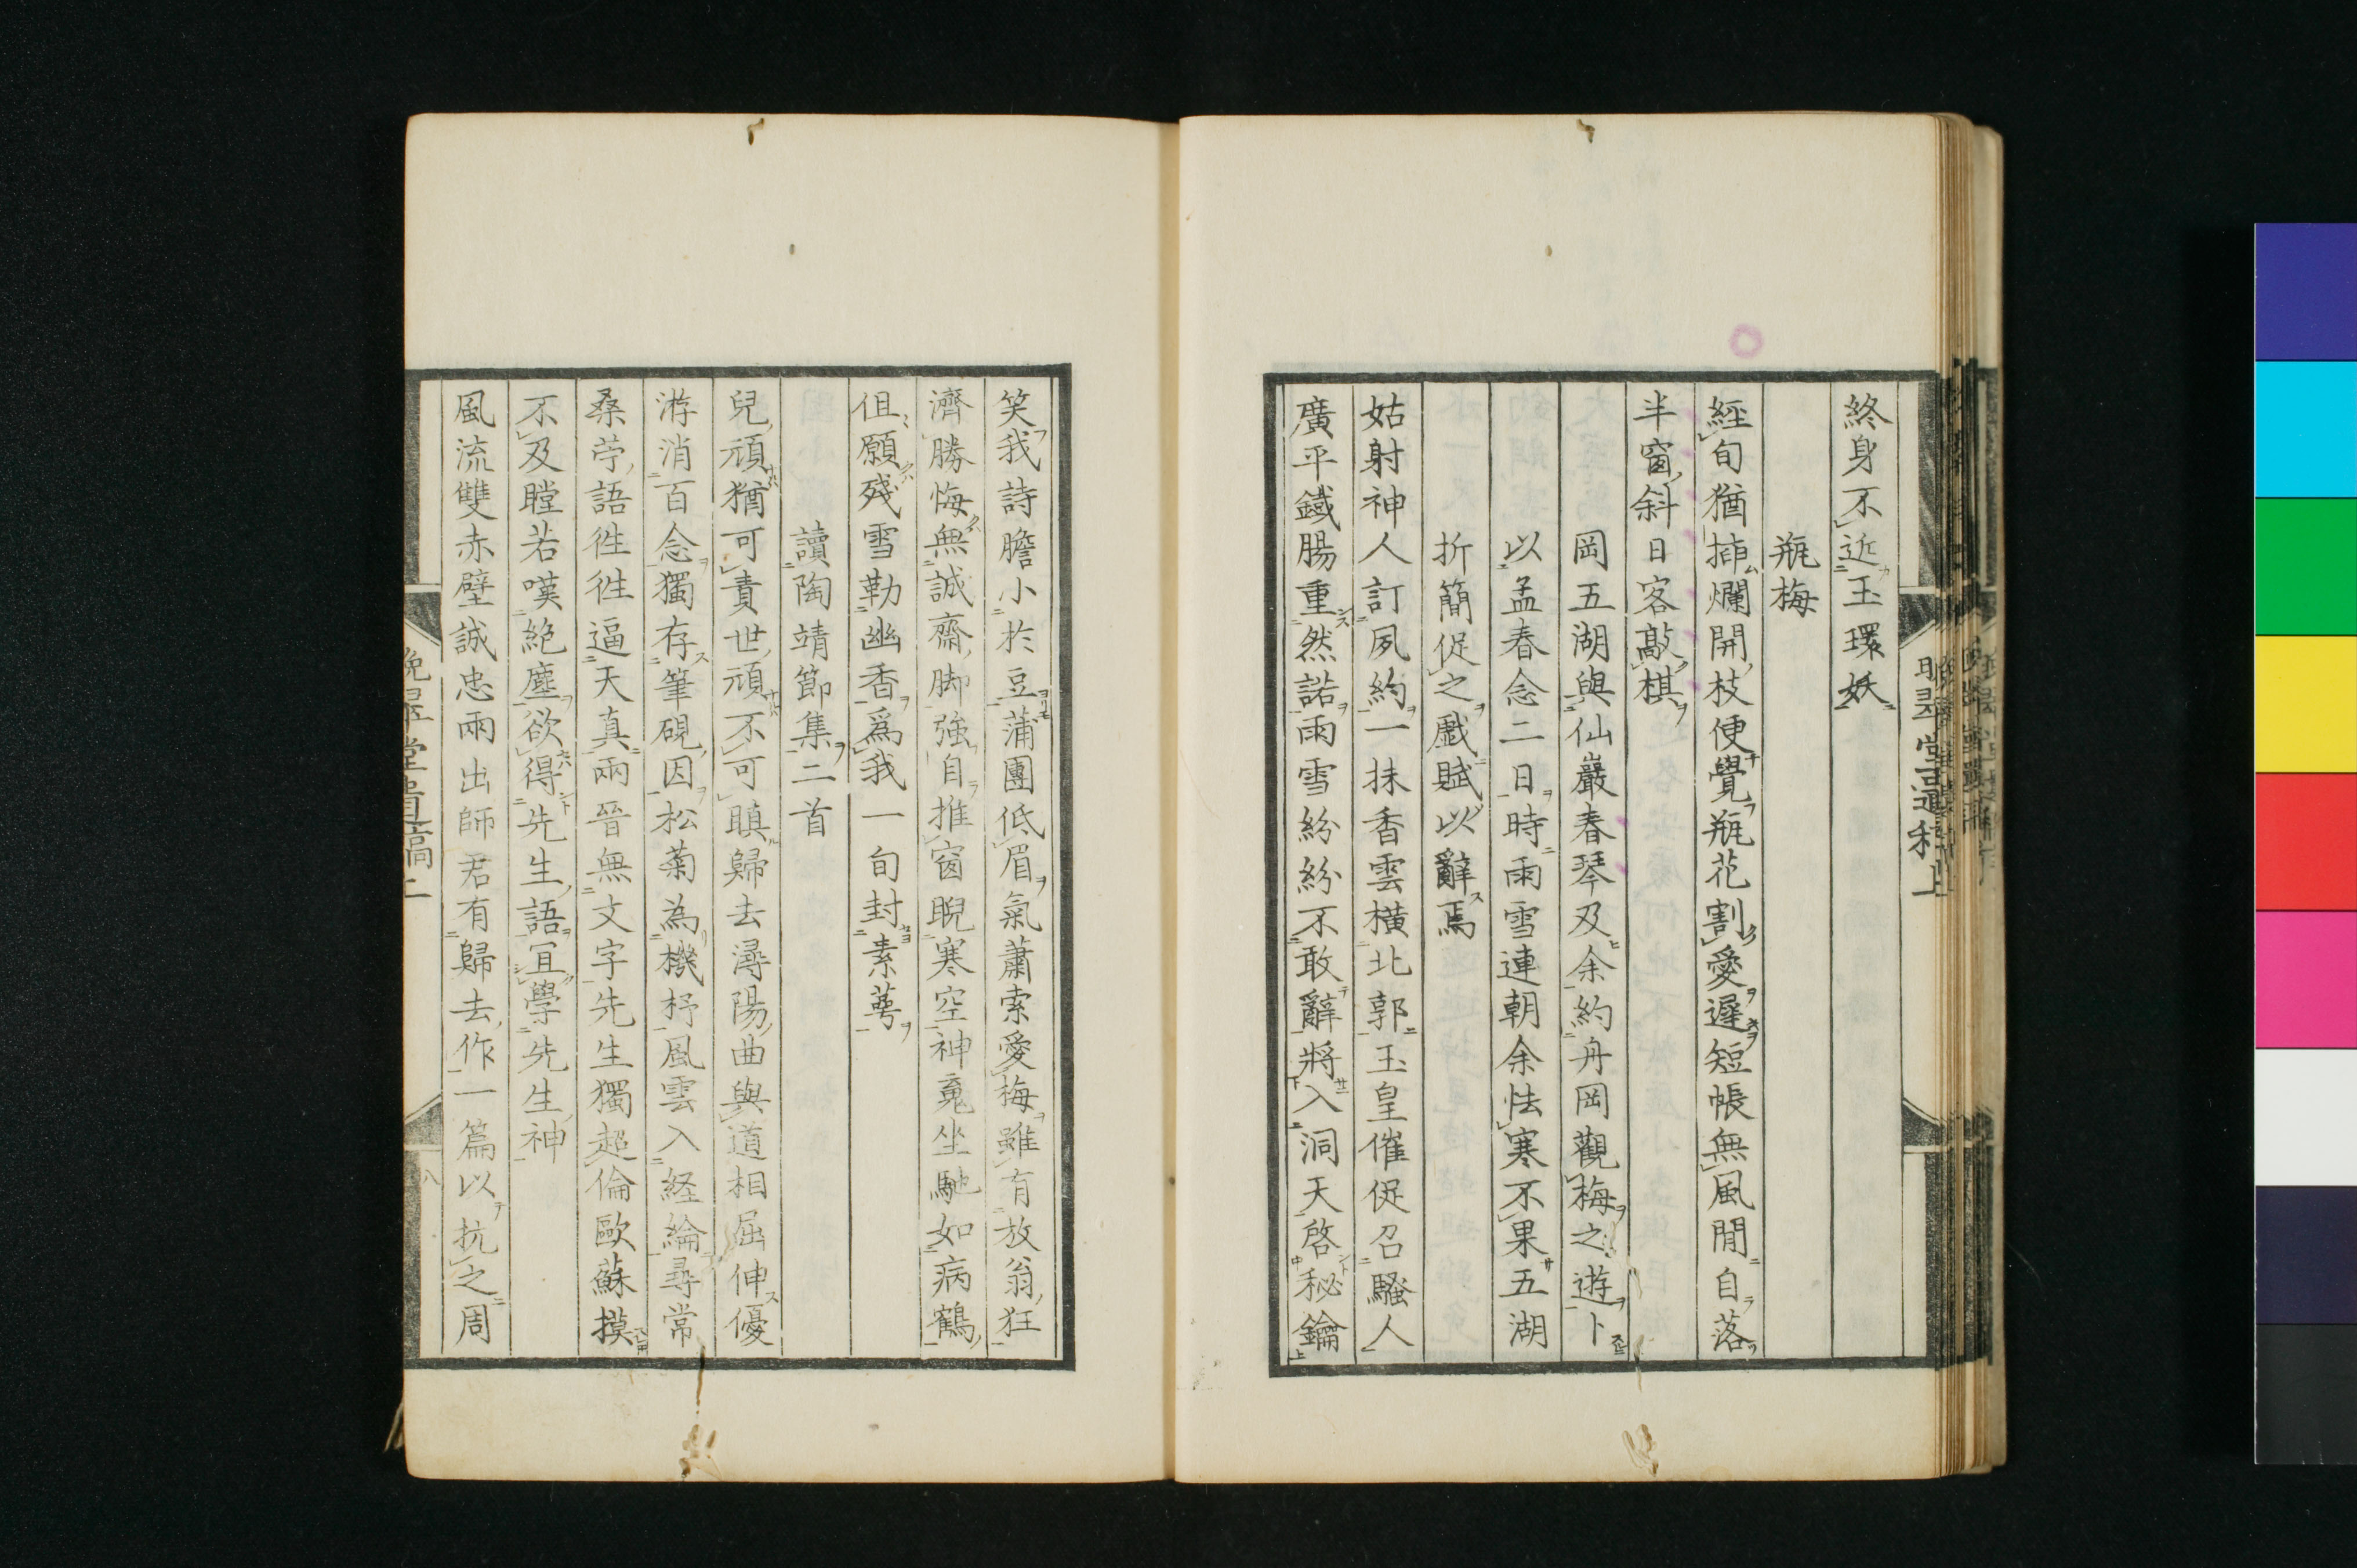 終身不近玉環妖
瓶梅
經旬猶揷爛開枝便覺瓶花割愛遲短帳無風閒自落
半窗斜日客敲棋
岡五湖與仙巖春琴及余約舟岡觀梅之遊卜
以孟春念二日時雨雪連朝余怯寒不果五湖
折簡促之戲賦以辭焉
姑射神人訂夙約一抹香雲橫北郭玉皇催促召騷人
廣平鐵腸重然諾雨雪紛紛不敢辭將入洞天啓秘鑰
笑我詩膽小於豆蒲團低眉氣蕭索愛梅雖有放翁狂
濟勝悔無誠齋脚強自推窗睨寒空神鬼坐馳如病鶴
但願殘雪勒幽香爲我一旬封素萼
讀陶靖節集二首
兒頑猶可責世頑不可瞋歸去潯陽曲與道相屈伸優
游消百念獨存筆硯因松菊為機杼風雲入経綸尋常
桑苧語徃徃逼天真兩晉無文字先生獨超倫歐蘇摸
不及瞠若嘆絶塵欲得先生語宜學先生神
風流雙赤壁誠忠兩出師君有歸去作一篇以抗之周
晚翠堂遺稿二
八